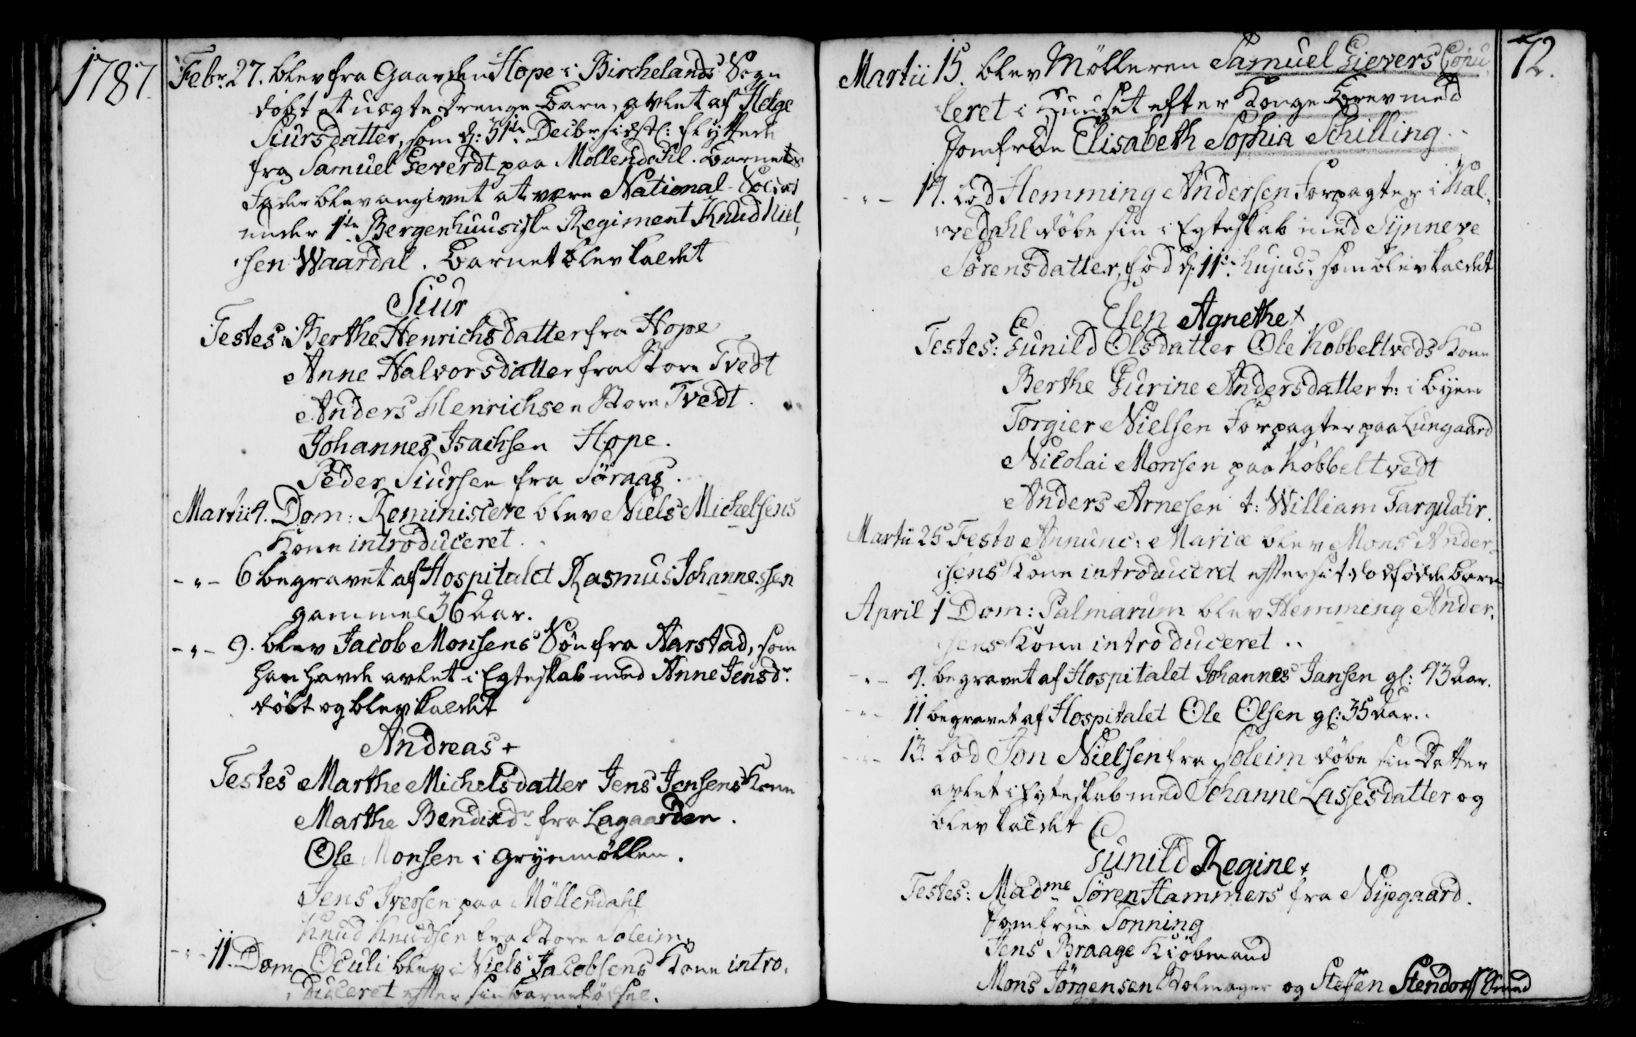 1787.
Febr: 27. blev fra Gaarden Hope i Birchelands Sogn
døbt et uægte Drenge Barn, avlet af Helge
Siursdatter, som d: 31te Decbr sidstl: flyttede
fra Samuel Geverdt paa Møllendahl. Barnets
Fader blev angivet at være National Soldat
under 1te Bergenhuusiske Regiment Knud Niel,
sen Waardal. Barnet blev kaldet
Siur
Testes: Berthe Henrichsdatter fra Hope
Anne Halvorsdatter fra Store Tvedt
Anders Henrichsen Store Tvedt.
Johannes Isachsen Hope.
Peder Siursen fra Søraas.
Martii 4. Dom: Reminiscere blev Niels Michelsens
Kone introduceret.
- " - 6 begravet af Hospitalet Rasmus Johannessen
gammel 36 Aar.
- " - 9. blev Jacob Monsens Søn fra Aarstad, som
han havde avlet i Egteskab med Anne Jensdr
døbt og blev kaldet
Andreas +
Testes Marthe Michelsdatter Jens Jensens Kone
Marthe Bendixdr fra Lagaarden.
Ole Monsen i Grynmøllen.
Jens Iversen paa Møllendahl
Knud Knudsen fra Store Soleim.
- " - 11. Dom. Oculi blev Niels Jacobsens Kone intro,
duceret efter sin Barnefødsel.
72.
Martii 15. blev Mølleren Samuel Gievers Copu,
leret i Huuset efter Konge Brev med
Jomfrue Elisabeth Sophia Schilling.
- " - 17. lod Hemming Andersen Forpagter i Kal,
vedahl døbe sin i Egteskab med Synneve
Sørensdatter, fød d: 11te hujus, som blev kaldet
Elen Agnethe +
Testes: Gunild Olsdatter Ole Kobbeltvedts Kone
Berthe Gurine Andersdatter t: i Byen
Torgier Nielsen Forpagter paa Lungaard
Nicolai Monsen paa Kobbeltvedt
Anders Arnesen t: William Farquhar.
Martii 25 Festo Annunc: Mariæ blev Mons Ander,
sens Kone introduceret efter sit dødfødde Barn
April 1 Dom: Palmarum blev Hemming Ander,
sens Kone introduceret ..
- " - 9. begravet af Hospitalet Johannes Jansen gl: 73 Aar.
- " - 11 begravet af Hospitalet Ole Olsen gl: 35 Aar..
- " - 13. lod Jon Nielsen fra Soleim døbe sin Datter
avlet i Egteskab med Johanne Lassesdatter og
blev kaldet
Gunild Regine +
Testes: Madme Søren Hammers fra Nyegaard.
Jomfrue Tonning
Jens Braage Kiøbmand
Mons Jørgensen Stolmager og Steffen Stendorff Svend